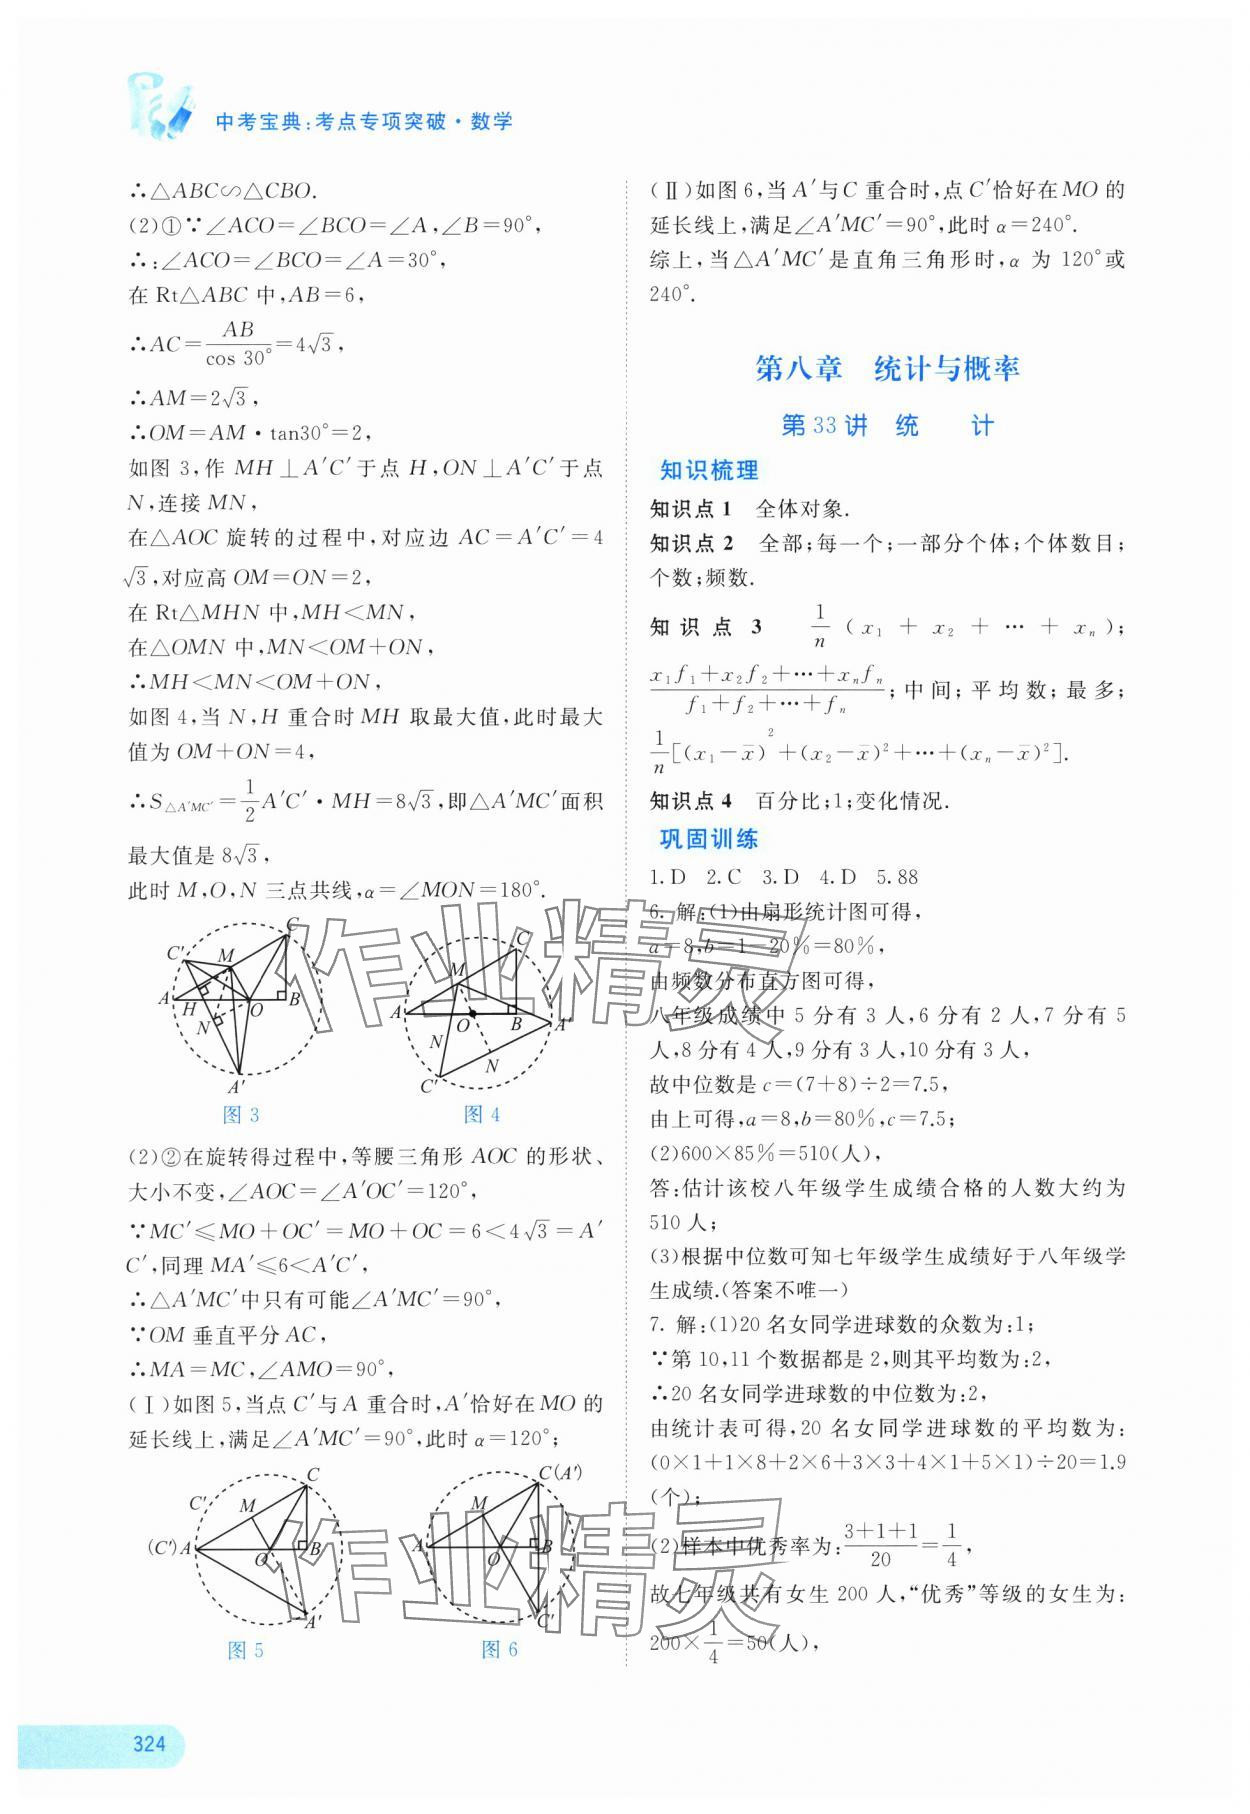 中考宝典:考点专项突破·数学
∴△ABC∽△CBO.
(2)①∵∠ACO=∠BCO=∠A,∠B=90°,
∴:∠ACO=∠BCO=∠A=30°,
在 Rt△ABC 中,AB=6,
∴AC=AB/cos 30°=4√3,
∴AM=2√3,
∴OM=AM·tan30°=2,
如图 3,作 MH⊥A′C′于点 H,ON⊥A′C′于点
N,连接 MN,
在△AOC 旋转的过程中,对应边 AC=A′C′=4
√3,对应高 OM=ON=2,
在 Rt△MHN 中,MH<MN,
在△OMN 中,MN<OM+ON,
∴MH<MN<OM+ON,
如图 4,当 N,H 重合时 MH 取最大值,此时最大
值为 OM+ON=4,
∴S△A′MC′=1/2A′C′·MH=8√3,即△A′MC′面积
最大值是 8√3,
此时 M,O,N 三点共线,α=∠MON=180°.
C
C′
M
A
H
O
B
N
A′
图 3
C
M
A
O
B
A′
N
N
C′
图 4
(2)②在旋转得过程中,等腰三角形 AOC 的形状、
大小不变,∠AOC=∠A′OC′=120°,
∵MC′≤MO+OC′=MO+OC=6<4√3=A′
C′,同理 MA′≤6<A′C′,
∴△A′MC′中只有可能∠A′MC′=90°,
∵OM 垂直平分 AC,
∴MA=MC,∠AMO=90°,
(Ⅰ)如图 5,当点 C′与 A 重合时,A′恰好在 MO 的
延长线上,满足∠A′MC′=90°,此时 α=120°;
C
C′
M
(C′)A
O
B
A′
图 5
C(A′)
M
A
O
B
C′
图 6
(Ⅱ)如图 6,当 A′与 C 重合时,点 C′恰好在 MO 的
延长线上,满足∠A′MC′=90°,此时 α=240°.
综上,当△A′MC′是直角三角形时,α 为 120°或
240°.
第八章 统计与概率
第 33 讲 统 计
知识梳理
知识点 1 全体对象.
知识点 2 全部;每一个;一部分个体;个体数目;
个数;频数.
知识点 3 1/n(x₁+x₂+…+xₙ);
(x₁f₁+x₂f₂+…+xₙfₙ)/(f₁+f₂+…+fₙ);中间;平均数;最多;
1/n[(x₁−x̄)²+(x₂−x̄)²+…+(xₙ−x̄)²].
知识点 4 百分比;1;变化情况.
巩固训练
1.D 2.C 3.D 4.D 5.88
6. 解:(1)由扇形统计图可得,
a=8,b=1−20%=80%,
由频数分布直方图可得,
八年级成绩中 5 分有 3 人,6 分有 2 人,7 分有 5
人,8 分有 4 人,9 分有 3 人,10 分有 3 人,
故中位数是 c=(7+8)÷2=7.5,
由上可得,a=8,b=80%,c=7.5;
(2)600×85%=510(人),
答:估计该校八年级学生成绩合格的人数大约为
510 人;
(3)根据中位数可知七年级学生成绩好于八年级学
生成绩.(答案不唯一)
7. 解:(1)20 名女同学进球数的众数为:1;
∵第 10,11 个数据都是 2,则其平均数为:2,
∴20 名女同学进球数的中位数为:2,
由统计表可得,20 名女同学进球数的平均数为:
(0×1+1×8+2×6+3×3+4×1+5×1)÷20=1.9
(个);
(2)样本中优秀率为:(3+1+1)/20=1/4,
故七年级共有女生 200 人,“优秀”等级的女生为:
200×1/4=50(人),
作业精灵
作业精灵
324